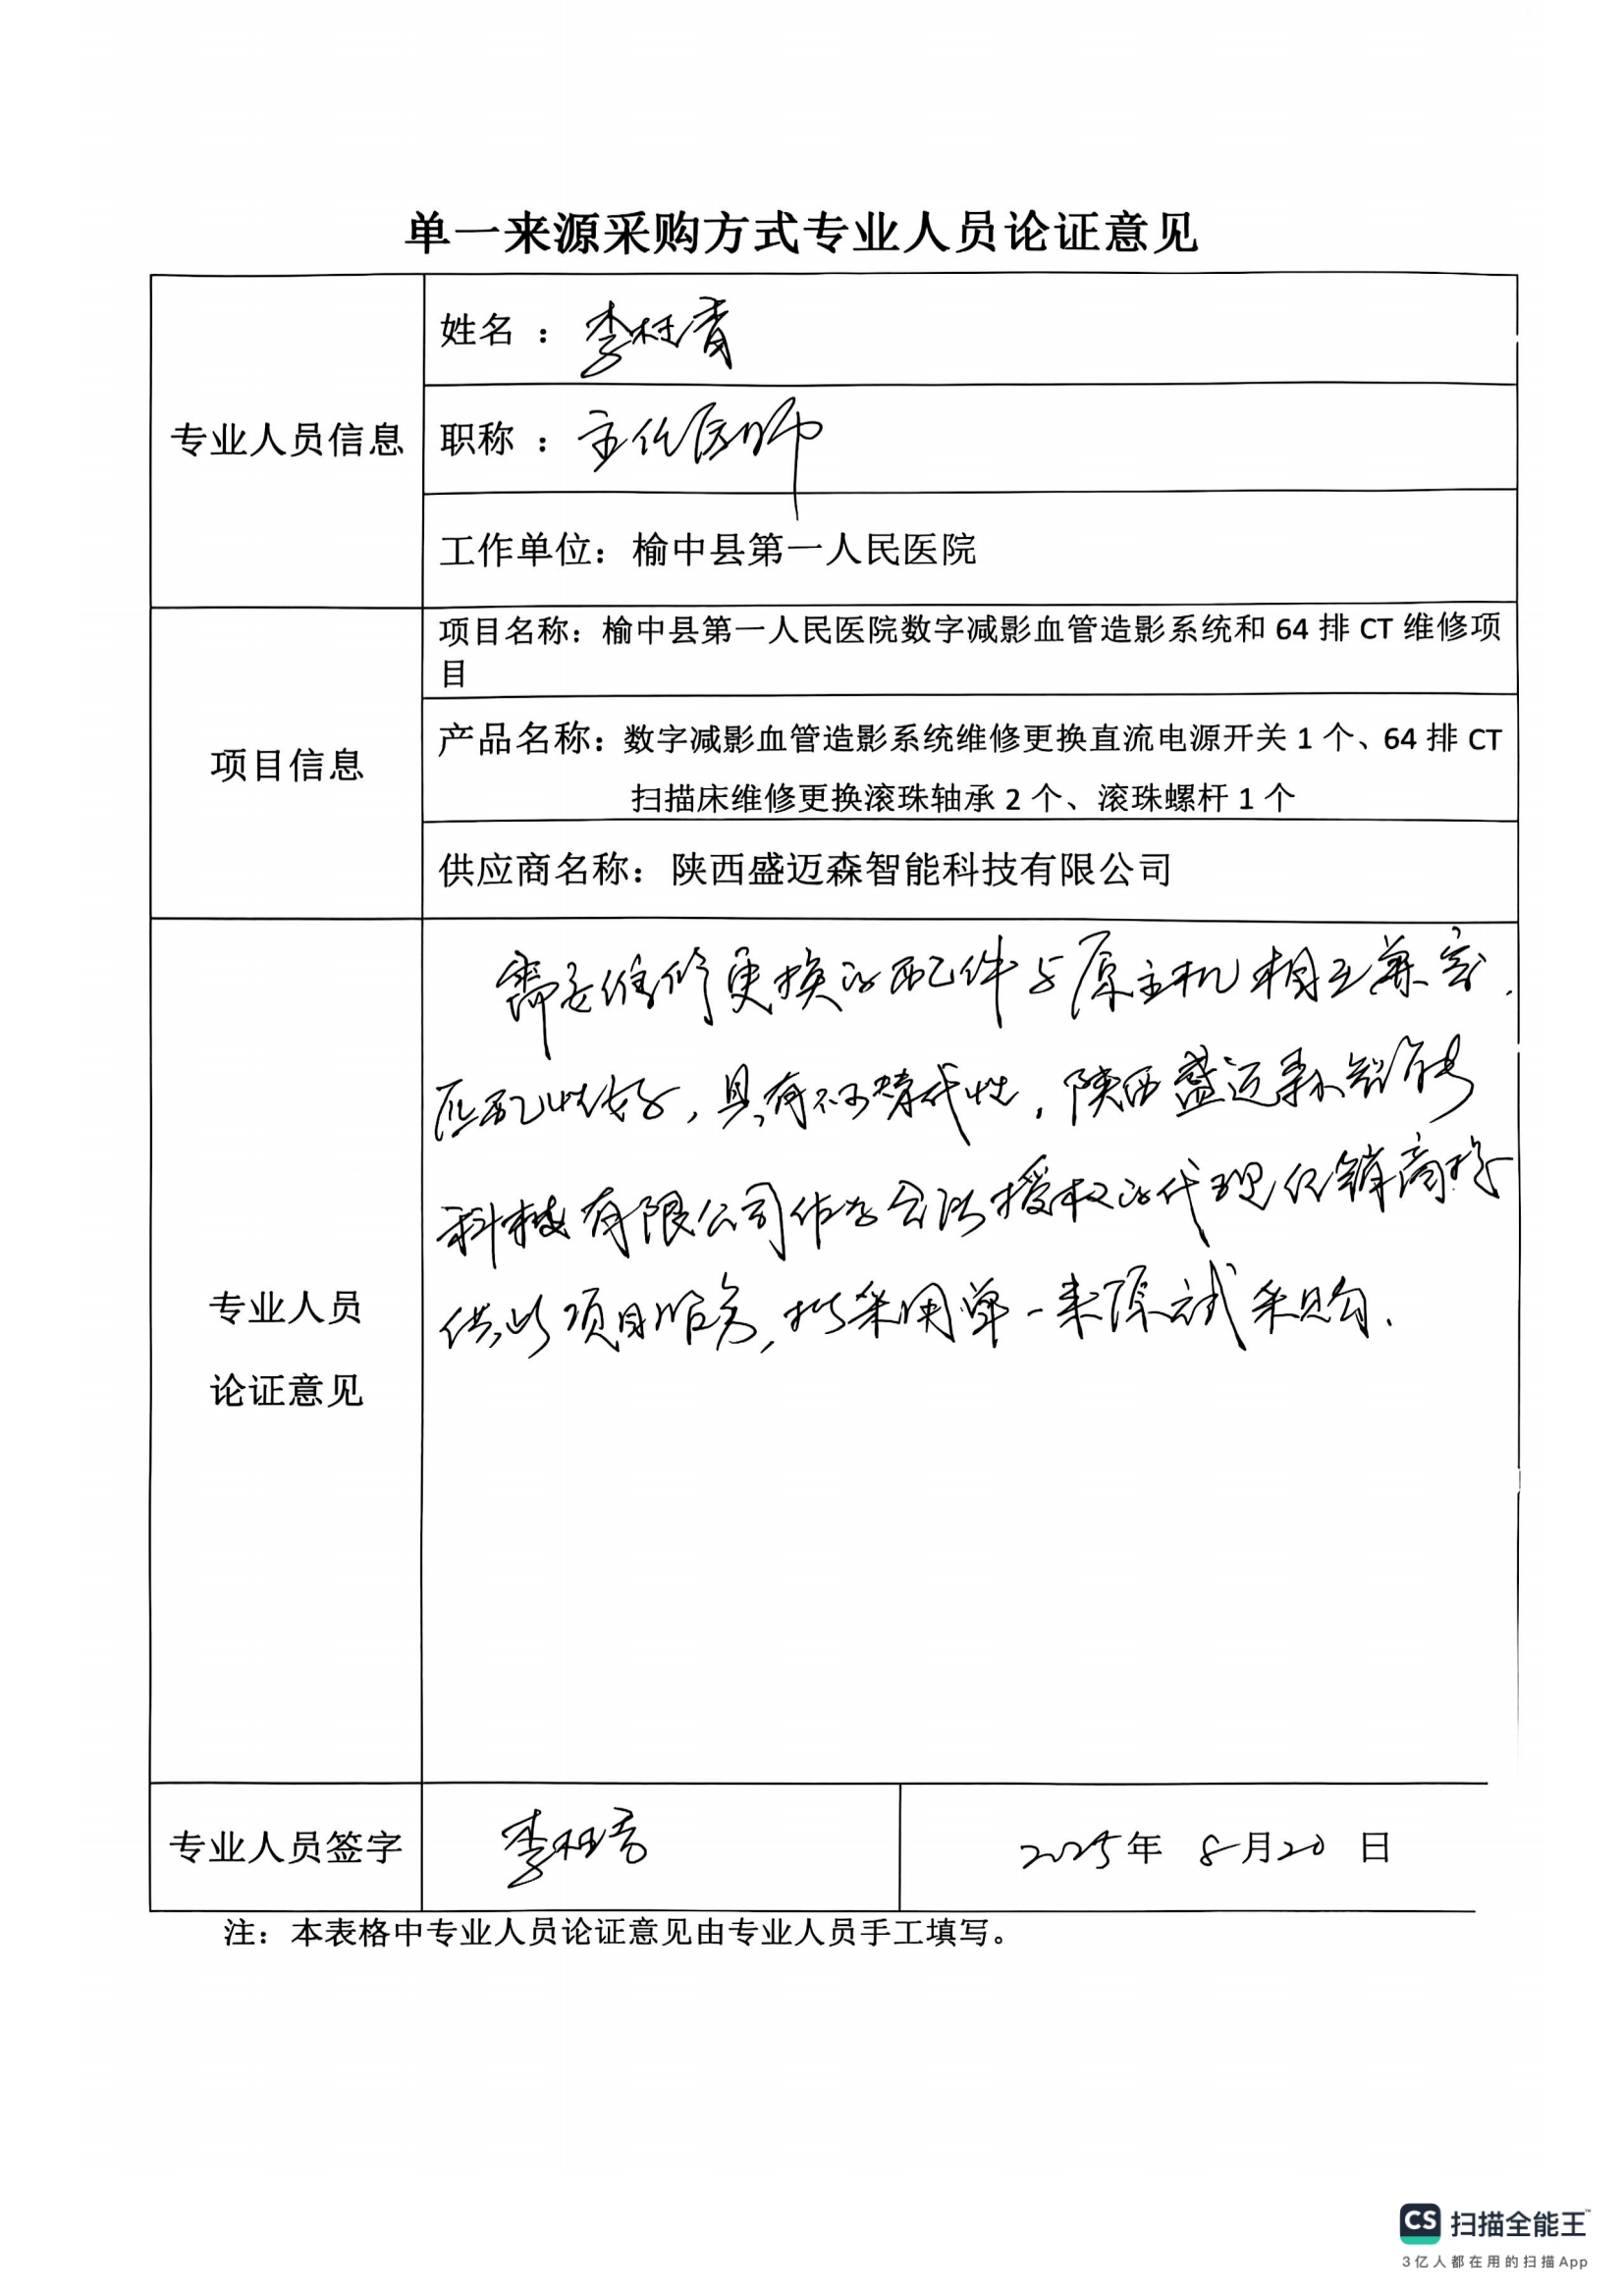 单一来源采购方式专业人员论证意见
专业人员信息
姓名 : 李
职称 : 主任医师
工作单位: 榆中县第一人民医院
项目信息
项目名称: 榆中县第一人民医院数字减影血管造影系统和 64 排 CT 维修项
目
产品名称: 数字减影血管造影系统维修更换直流电源开关 1 个、64 排 CT
扫描床维修更换滚珠轴承 2 个、滚珠螺杆 1 个
供应商名称: 陕西盛迈森智能科技有限公司
专业人员
论证意见
需要维修更换的配件与原主机相互兼容,
匹配性好, 具有不可替代性, 陕西盛迈森智能
科技有限公司作为合法授权的代理经销商提
供此项目服务, 拟采用单一来源式采购.
专业人员签字
李
2025年 8月20 日
注: 本表格中专业人员论证意见由专业人员手工填写。
CS 扫描全能王™
3亿人都在用的扫描App